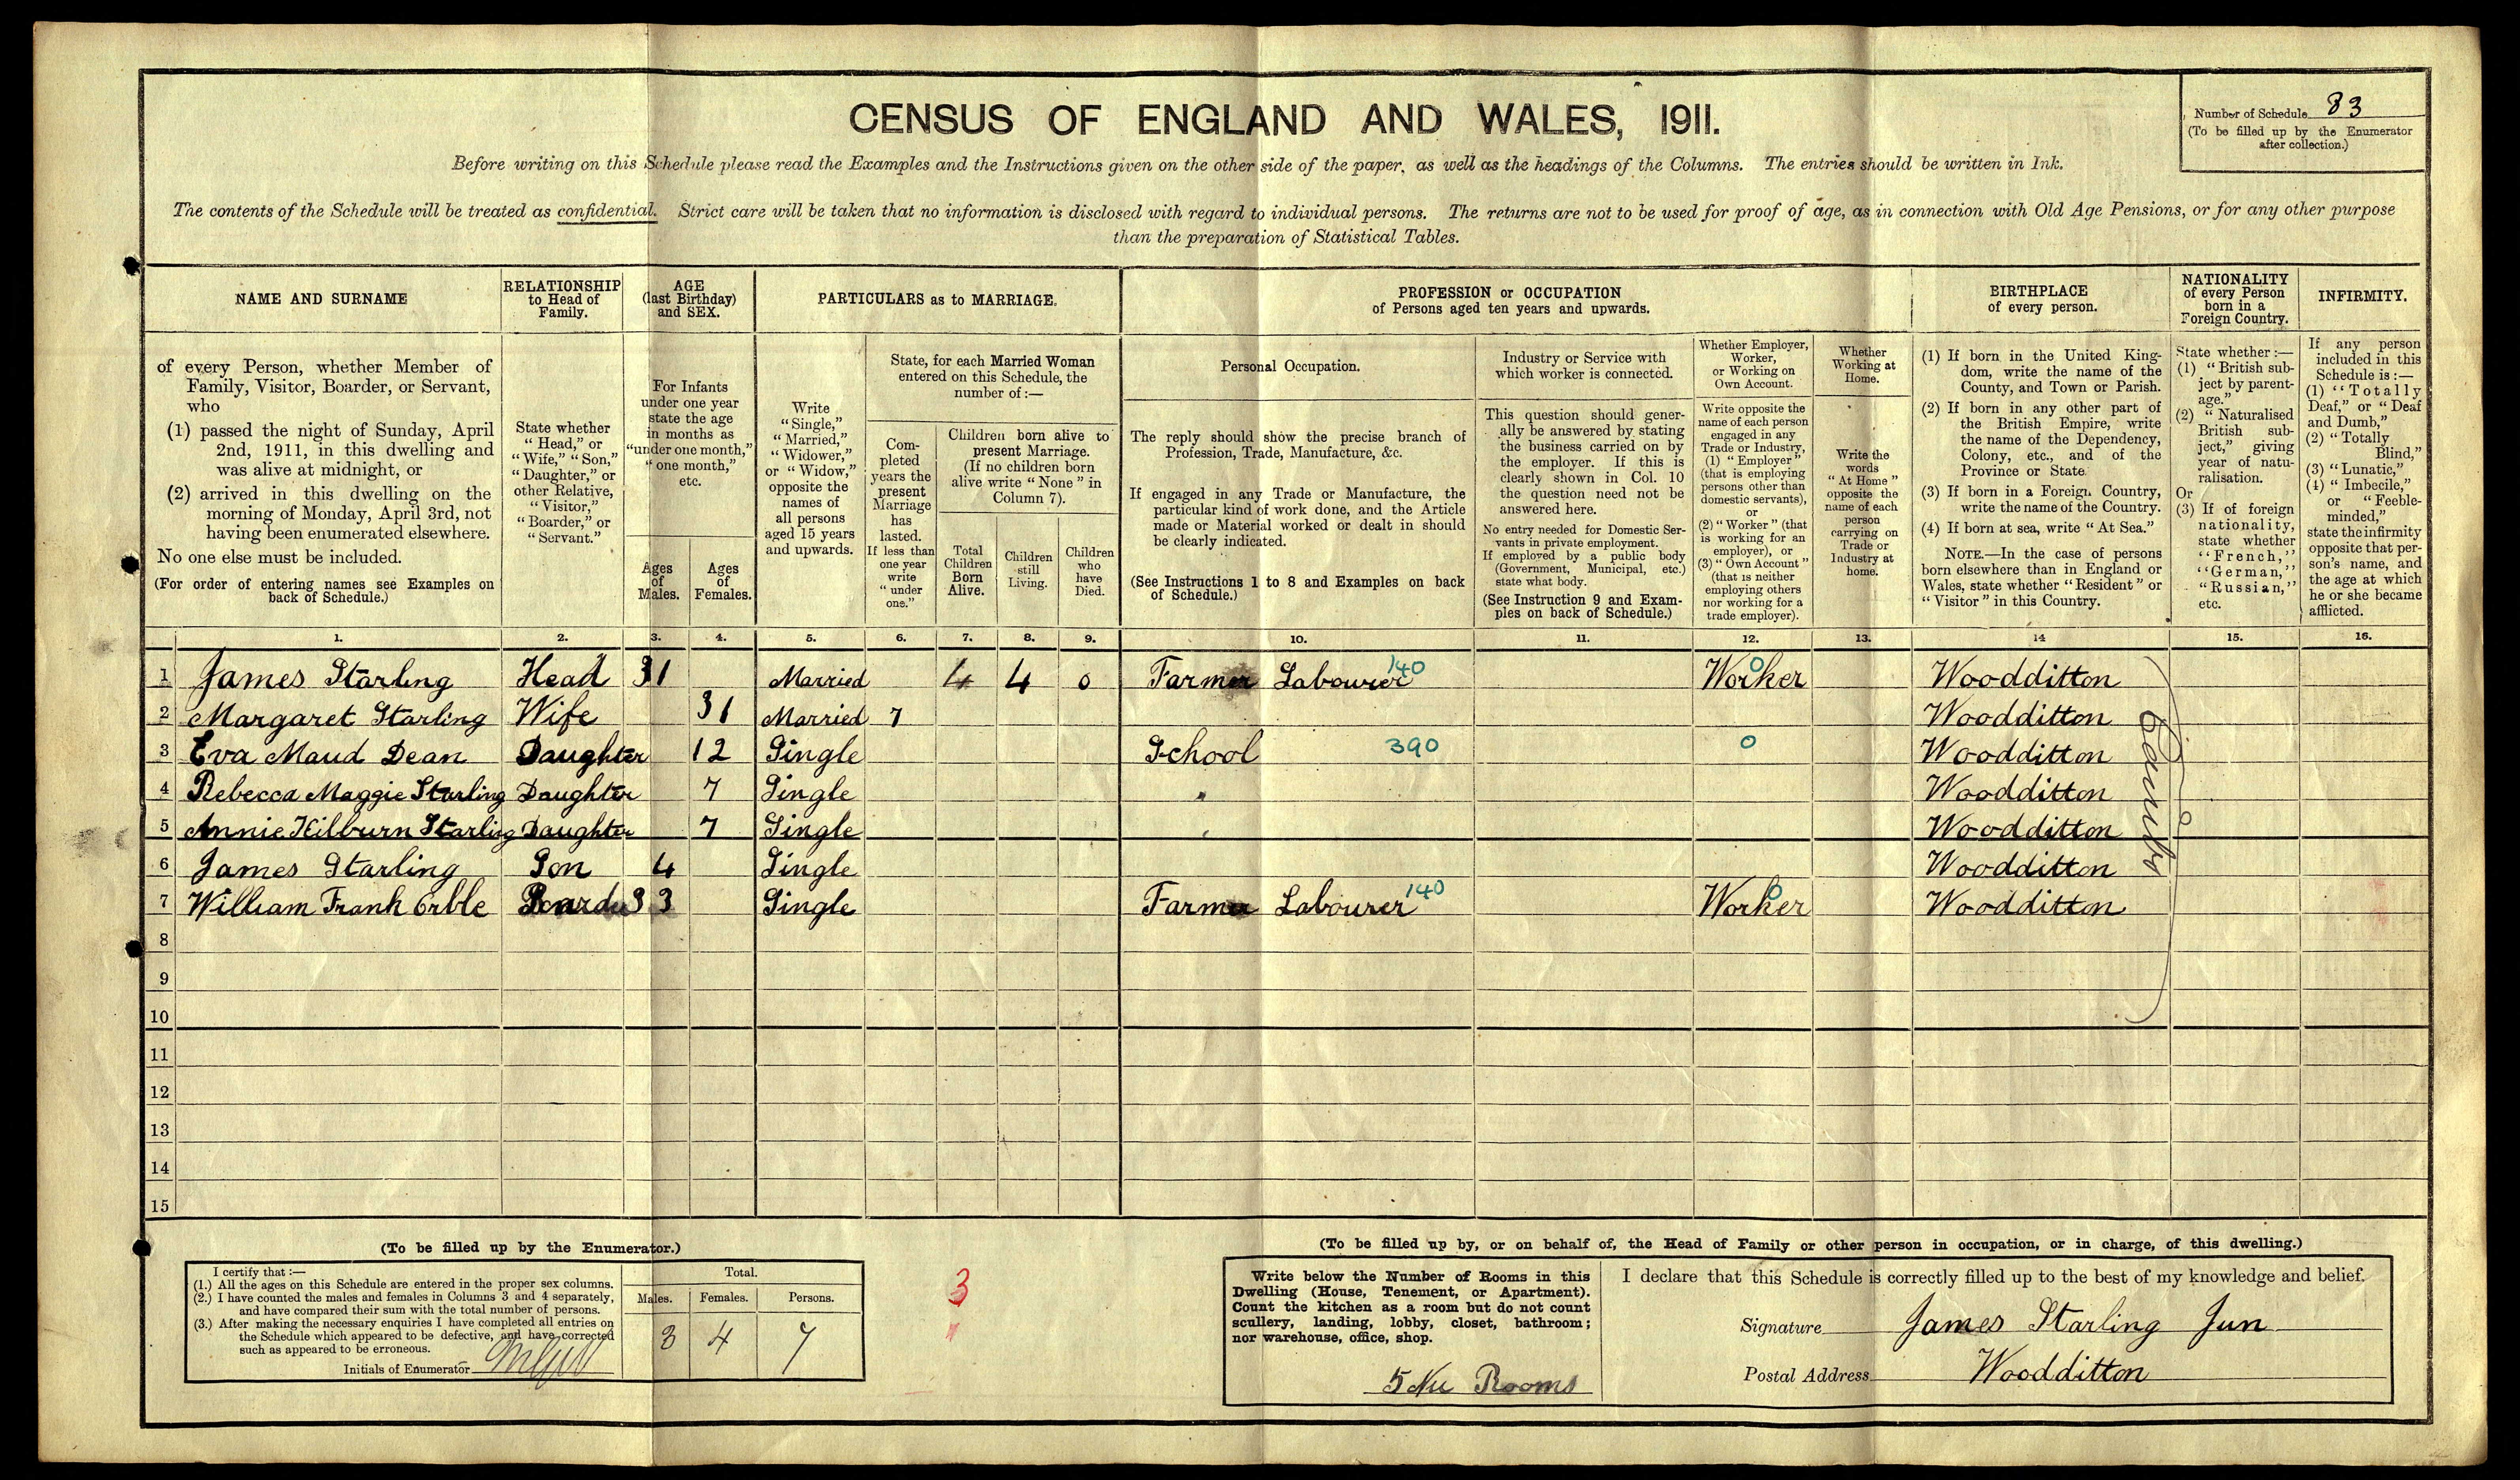 CENSUS OF ENGLAND AND WALES, 1911.
Number of Schedule 83
(To be filled up by the Enumerator
after collection.)
Before writing on this Schedule please read the Examples and the Instructions given on the other side of the paper, as well as the headings of the Columns. The entries should be written in Ink.
The contents of the Schedule will be treated as confidential. Strict care will be taken that no information is disclosed with regard to individual persons. The returns are not to be used for proof of age, as in connection with Old Age Pensions, or for any other purpose
than the preparation of Statistical Tables.
NAME AND SURNAME
of every Person, whether Member of
Family, Visitor, Boarder, or Servant,
who
(1) passed the night of Sunday, April
2nd, 1911, in this dwelling and
was alive at midnight, or
(2) arrived in this dwelling on the
morning of Monday, April 3rd, not
having been enumerated elsewhere.
No one else must be included.
(For order of entering names see Examples on
back of Schedule.)
RELATIONSHIP
to Head of
Family.
State whether
"Head," or
"Wife," "Son,"
"Daughter," or
other Relative,
"Visitor,"
"Boarder," or
"Servant."
AGE
(last Birthday)
and SEX.
For Infants
under one year
state the age
in months as
"under one month,"
"one month,"
etc.
Ages
of
Males.
Ages
of
Females.
PARTICULARS as to MARRIAGE.
Write
"Single,"
"Married,"
"Widower,"
or "Widow,"
opposite the
names of
all persons
aged 15 years
and upwards.
State, for each Married Woman
entered on this Schedule, the
number of :—
Com-
pleted
years the
present
Marriage
has
lasted.
If less than
one year
write
"under
one."
Children born alive to
present Marriage.
(If no children born
alive write "None" in
Column 7).
Total
Children
Born
Alive.
Children
still
Living.
Children
who
have
Died.
PROFESSION or OCCUPATION
of Persons aged ten years and upwards.
Personal Occupation.
The reply should show the precise branch of
Profession, Trade, Manufacture, &c.
If engaged in any Trade or Manufacture, the
particular kind of work done, and the Article
made or Material worked or dealt in should
be clearly indicated.
(See Instructions 1 to 8 and Examples on back
of Schedule.)
Industry or Service with
which worker is connected.
This question should gener-
ally be answered by stating
the business carried on by
the employer. If this is
clearly shown in Col. 10
the question need not be
answered here.
No entry needed for Domestic Ser-
vants in private employment.
If employed by a public body
(Government, Municipal, etc.)
state what body.
(See Instruction 9 and Exam-
ples on back of Schedule.)
Whether Employer,
Worker,
or Working on
Own Account.
Write opposite the
name of each person
engaged in any
Trade or Industry,
(1) "Employer"
(that is employing
persons other than
domestic servants),
or
(2) "Worker" (that
is working for an
employer), or
(3) "Own Account"
(that is neither
employing others
nor working for a
trade employer).
Whether
Working at
Home.
Write the
words
"At Home"
opposite the
name of each
person
carrying on
Trade or
Industry at
home.
BIRTHPLACE
of every person.
(1) If born in the United King-
dom, write the name of the
County, and Town or Parish.
(2) If born in any other part of
the British Empire, write
the name of the Dependency,
Colony, etc., and of the
Province or State
(3) If born in a Foreign Country,
write the name of the Country.
(4) If born at sea, write "At Sea."
NOTE.—In the case of persons
born elsewhere than in England or
Wales, state whether "Resident" or
"Visitor" in this Country.
NATIONALITY
of every Person
born in a
Foreign Country.
State whether :—
(1) "British sub-
ject by parent-
age."
(2) "Naturalised
British sub-
ject," giving
year of natu-
ralisation.
Or
(3) If of foreign
nationality,
state whether
"French,"
"German,"
"Russian,"
etc.
INFIRMITY.
If any person
included in this
Schedule is :—
(1) "Totally
Deaf," or "Deaf
and Dumb,"
(2) "Totally
Blind,"
(3) "Lunatic,"
(4) "Imbecile,"
or "Feeble-
minded,"
state the infirmity
opposite that per-
son's name, and
the age at which
he or she became
afflicted.
1. 2. 3. 4. 5. 6. 7. 8. 9. 10. 11. 12. 13. 14 15. 16.
1 James Starling Head 31 Married 4 4 0 Farmer Labourer 140 Worker 0 Woodditton
2 Margaret Starling Wife 31 Married 7 Woodditton
3 Eva Maud Dean Daughter 12 Single School 390 0 Woodditton
4 Rebecca Maggie Starling Daughter 7 Single Woodditton
5 Annie Kilburn Starling Daughter 7 Single Woodditton
6 James Starling Son 4 Single Woodditton
7 William Frank Orble Boarder 33 Single Farmer Labourer 140 Worker 0 Woodditton
8
9
10
11
12
13
14
15
(To be filled up by the Enumerator.)
I certify that :—
(1.) All the ages on this Schedule are entered in the proper sex columns.
(2.) I have counted the males and females in Columns 3 and 4 separately,
and have compared their sum with the total number of persons.
(3.) After making the necessary enquiries I have completed all entries on
the Schedule which appeared to be defective, and have corrected
such as appeared to be erroneous.
Initials of Enumerator
Total.
Males. Females. Persons.
3 4 7
3
(To be filled up by, or on behalf of, the Head of Family or other person in occupation, or in charge, of this dwelling.)
Write below the Number of Rooms in this
Dwelling (House, Tenement, or Apartment).
Count the kitchen as a room but do not count
scullery, landing, lobby, closet, bathroom;
nor warehouse, office, shop.
5 Rooms
I declare that this Schedule is correctly filled up to the best of my knowledge and belief.
Signature James Starling Jun
Postal Address Woodditton